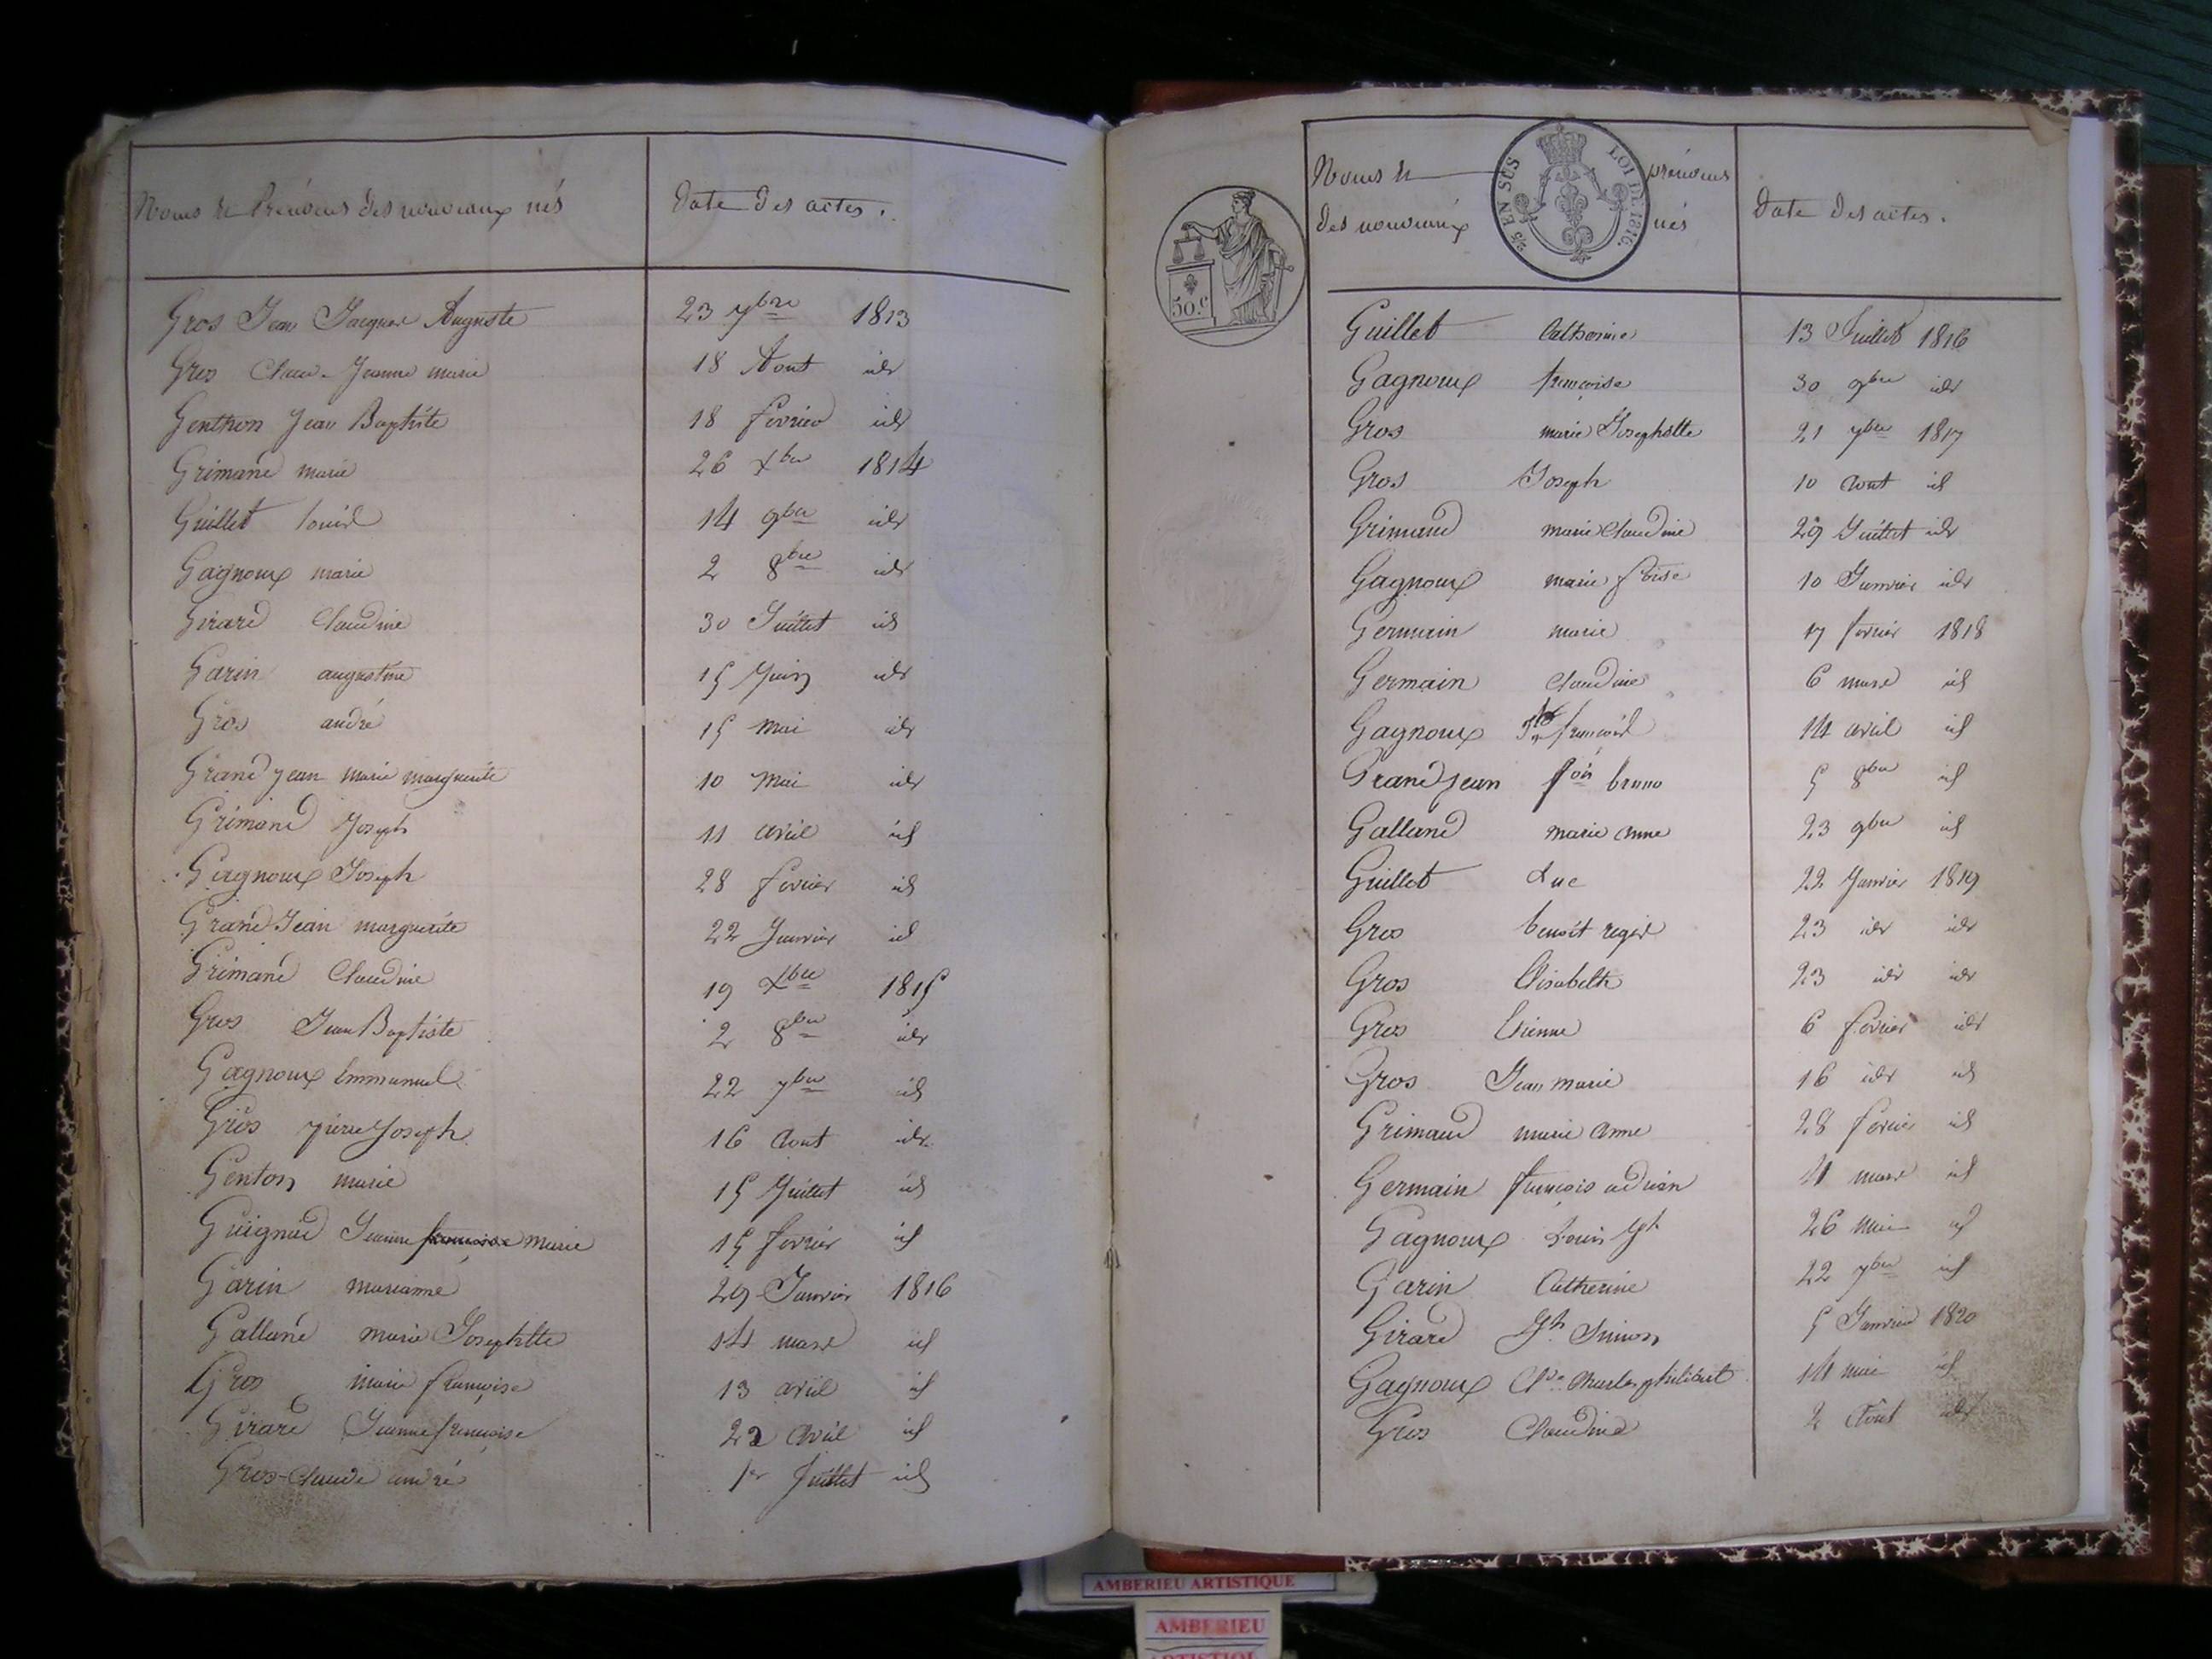 Noms et Prénoms des nouveaux nés
Date des actes.
Gros Jean Jacques Auguste 23 7bre 1813
Gros Claud. Jeanne marie 18 Aout idr
Genthon Jean Baptiste 18 fevrier idr
Grimand marie 26 Xbre 1814
Guillet Louis 14 9bre idr
Gagnoux marie 2 8bre idr
Girard Claudine 30 Juillet id
Garin augustine 15 Juin idr
Gros andré 15 mai idr
Grand jean marie marguerite 10 Mai idr
Grimand Joseph 11 avril id
Gagnoux Joseph 28 fevrier id
Grand Jean marguerite 22 Janvier id
Grimand Claudine 19 Xbre 1815
Gros Jean Baptiste 2 8bre idr
Gagnoux Emmanuel 22 7bre id
Gros pierre Joseph 16 Aout idr
Genton marie 15 Juillet id
Guignard Jeanne francoise marie 15 fevrier id
Garin marianne 29 Janvier 1816
Galland marie Josephtte 14 mars id
Gros marie françoise 13 avril id
Girard Jeanne françoise 22 Avril id
Gros-Claude andré 1er Juillet id
Noms et prénoms
des nouveaux nés
Date des actes.
5/10 EN SUS LOI DE 1816.
50.c
Guillet Catherine 13 Juillet 1816
Gagnoux françoise 30 9bre idr
Gros marie Josephtte 21 7bre 1817
Gros Joseph 10 aout id
Grimaud marie Claudine 29 Juillet idr
Gagnoux marie foise 10 Janvier idr
Germain marie 17 fevrier 1818
Germain Claudine 6 mars id
Gagnoux francois 14 avril id
Grand Jean fois bruno 5 8bre id
Galland marie anne 23 9bre id
Guillet Luc 22 Janvier 1819
Gros benoit regis 23 idr idr
Gros Elisabeth 23 idr idr
Gros Etienne 6 fevrier idr
Gros Jean marie 16 idr id
Grimaud marie anne 28 fevrier id
Germain françois adrien 11 mars id
Gagnoux Louis Jh 26 mai id
Garin Catherine 22 7bre id
Girard Jh Simon 5 Janvier 1820
Gagnoux Cde Charles philibert 14 mai id
Gros Claudine 2 Aout idr
AMBERIEU ARTISTIQUE
AMBERIEU
ARTISTIQUE